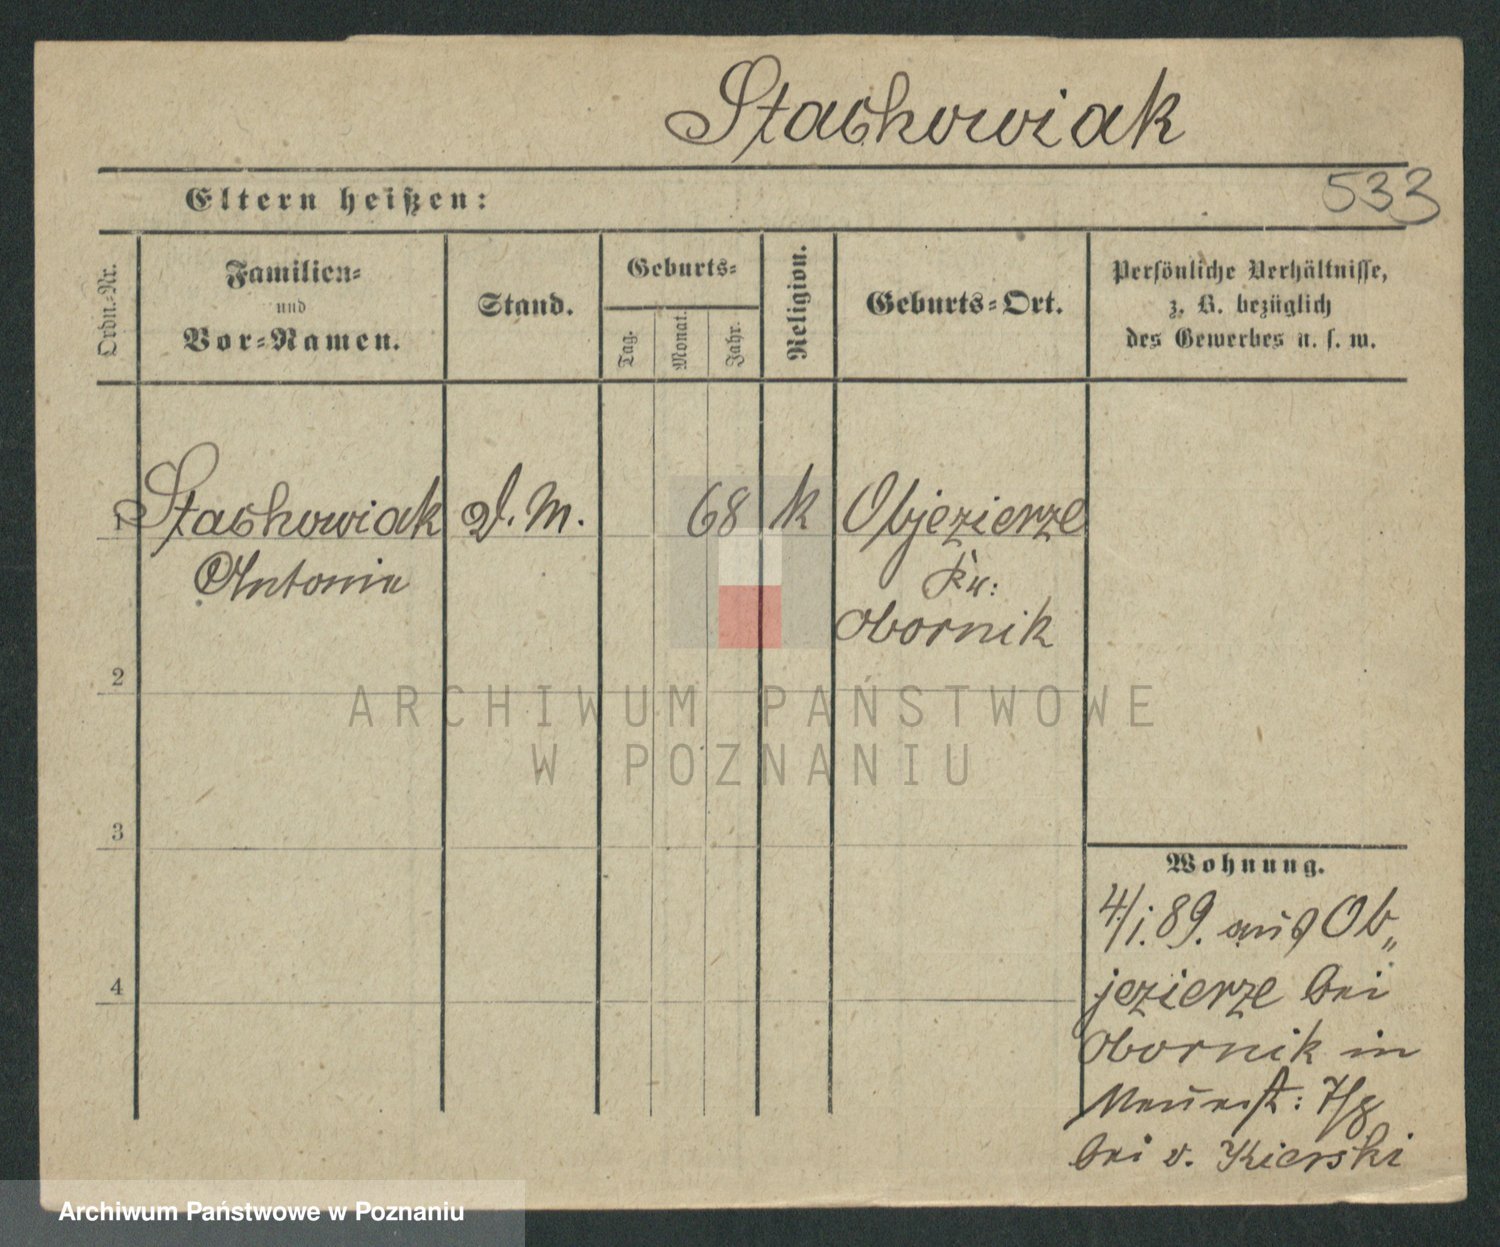 Stachowiak
533
Eltern heißen:
Ordn.-Nr.
Familien-
und
Vor-Namen.
Stand.
Geburts-
Tag.
Monat.
Jahr.
Religion.
Geburts-Ort.
Persönliche Verhältnisse,
z. B. bezüglich
des Gewerbes u. s. w.
1 Stachowiak D. M. 68 k Objezierze
Antonie Kr:
Obornik
2
ARCHIWUM PAŃSTWOWE
W POZNANIU
3
Wohnung.
4/1.89. aus Ob„
jezierze bei
4
Obornik in
bei v. Kierski
Archiwum Państwowe w Poznaniu